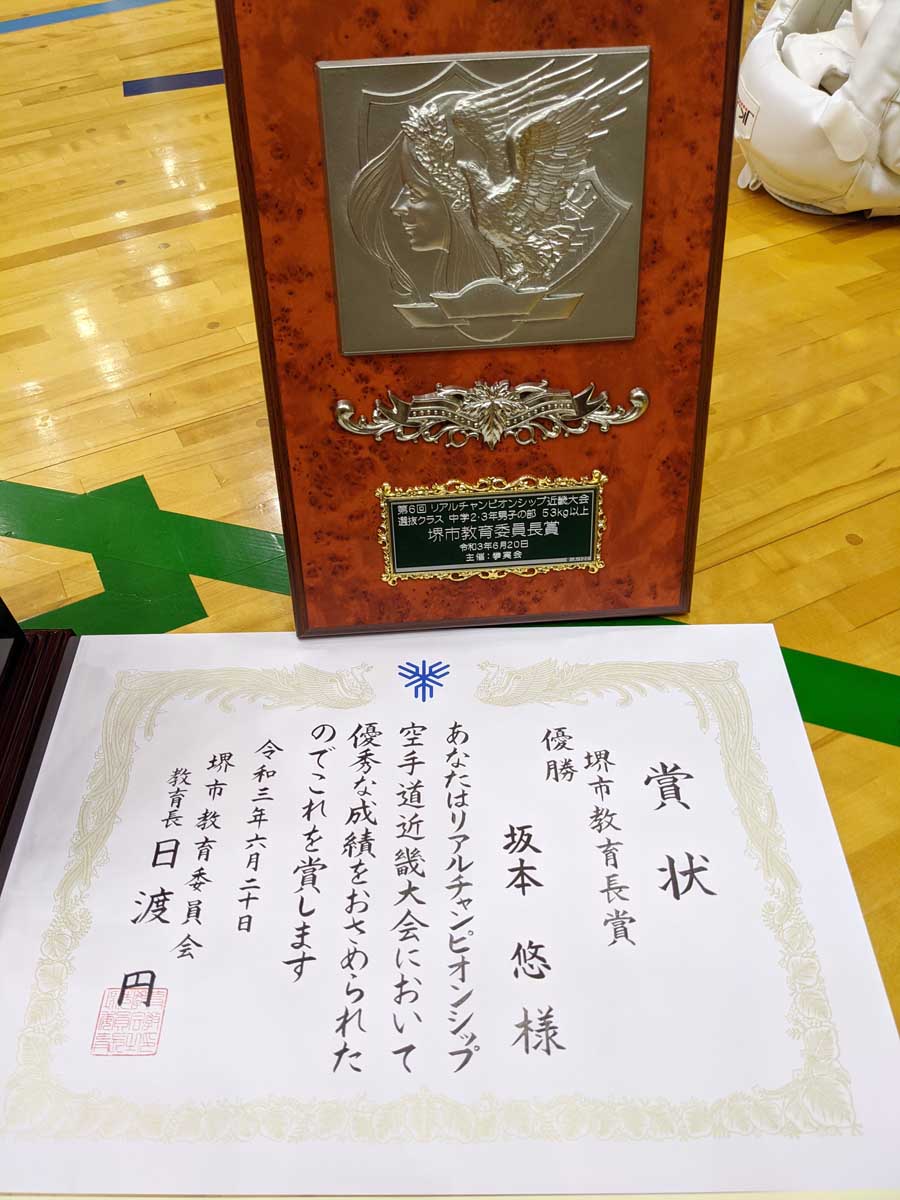 第6回 リアルチャンピオンシップ近畿大会
選抜クラス 中学2・3年男子の部 53kg以上
堺市教育委員長賞
令和3年6月20日
主催：拳実会
賞状
堺市教育長賞
優勝
坂本 悠 様
あなたはリアルチャンピオンシップ
空手道近畿大会において
優秀な成績をおさめられた
のでこれを賞します
令和三年六月二十日
堺市教育委員会
教育長 日渡 円